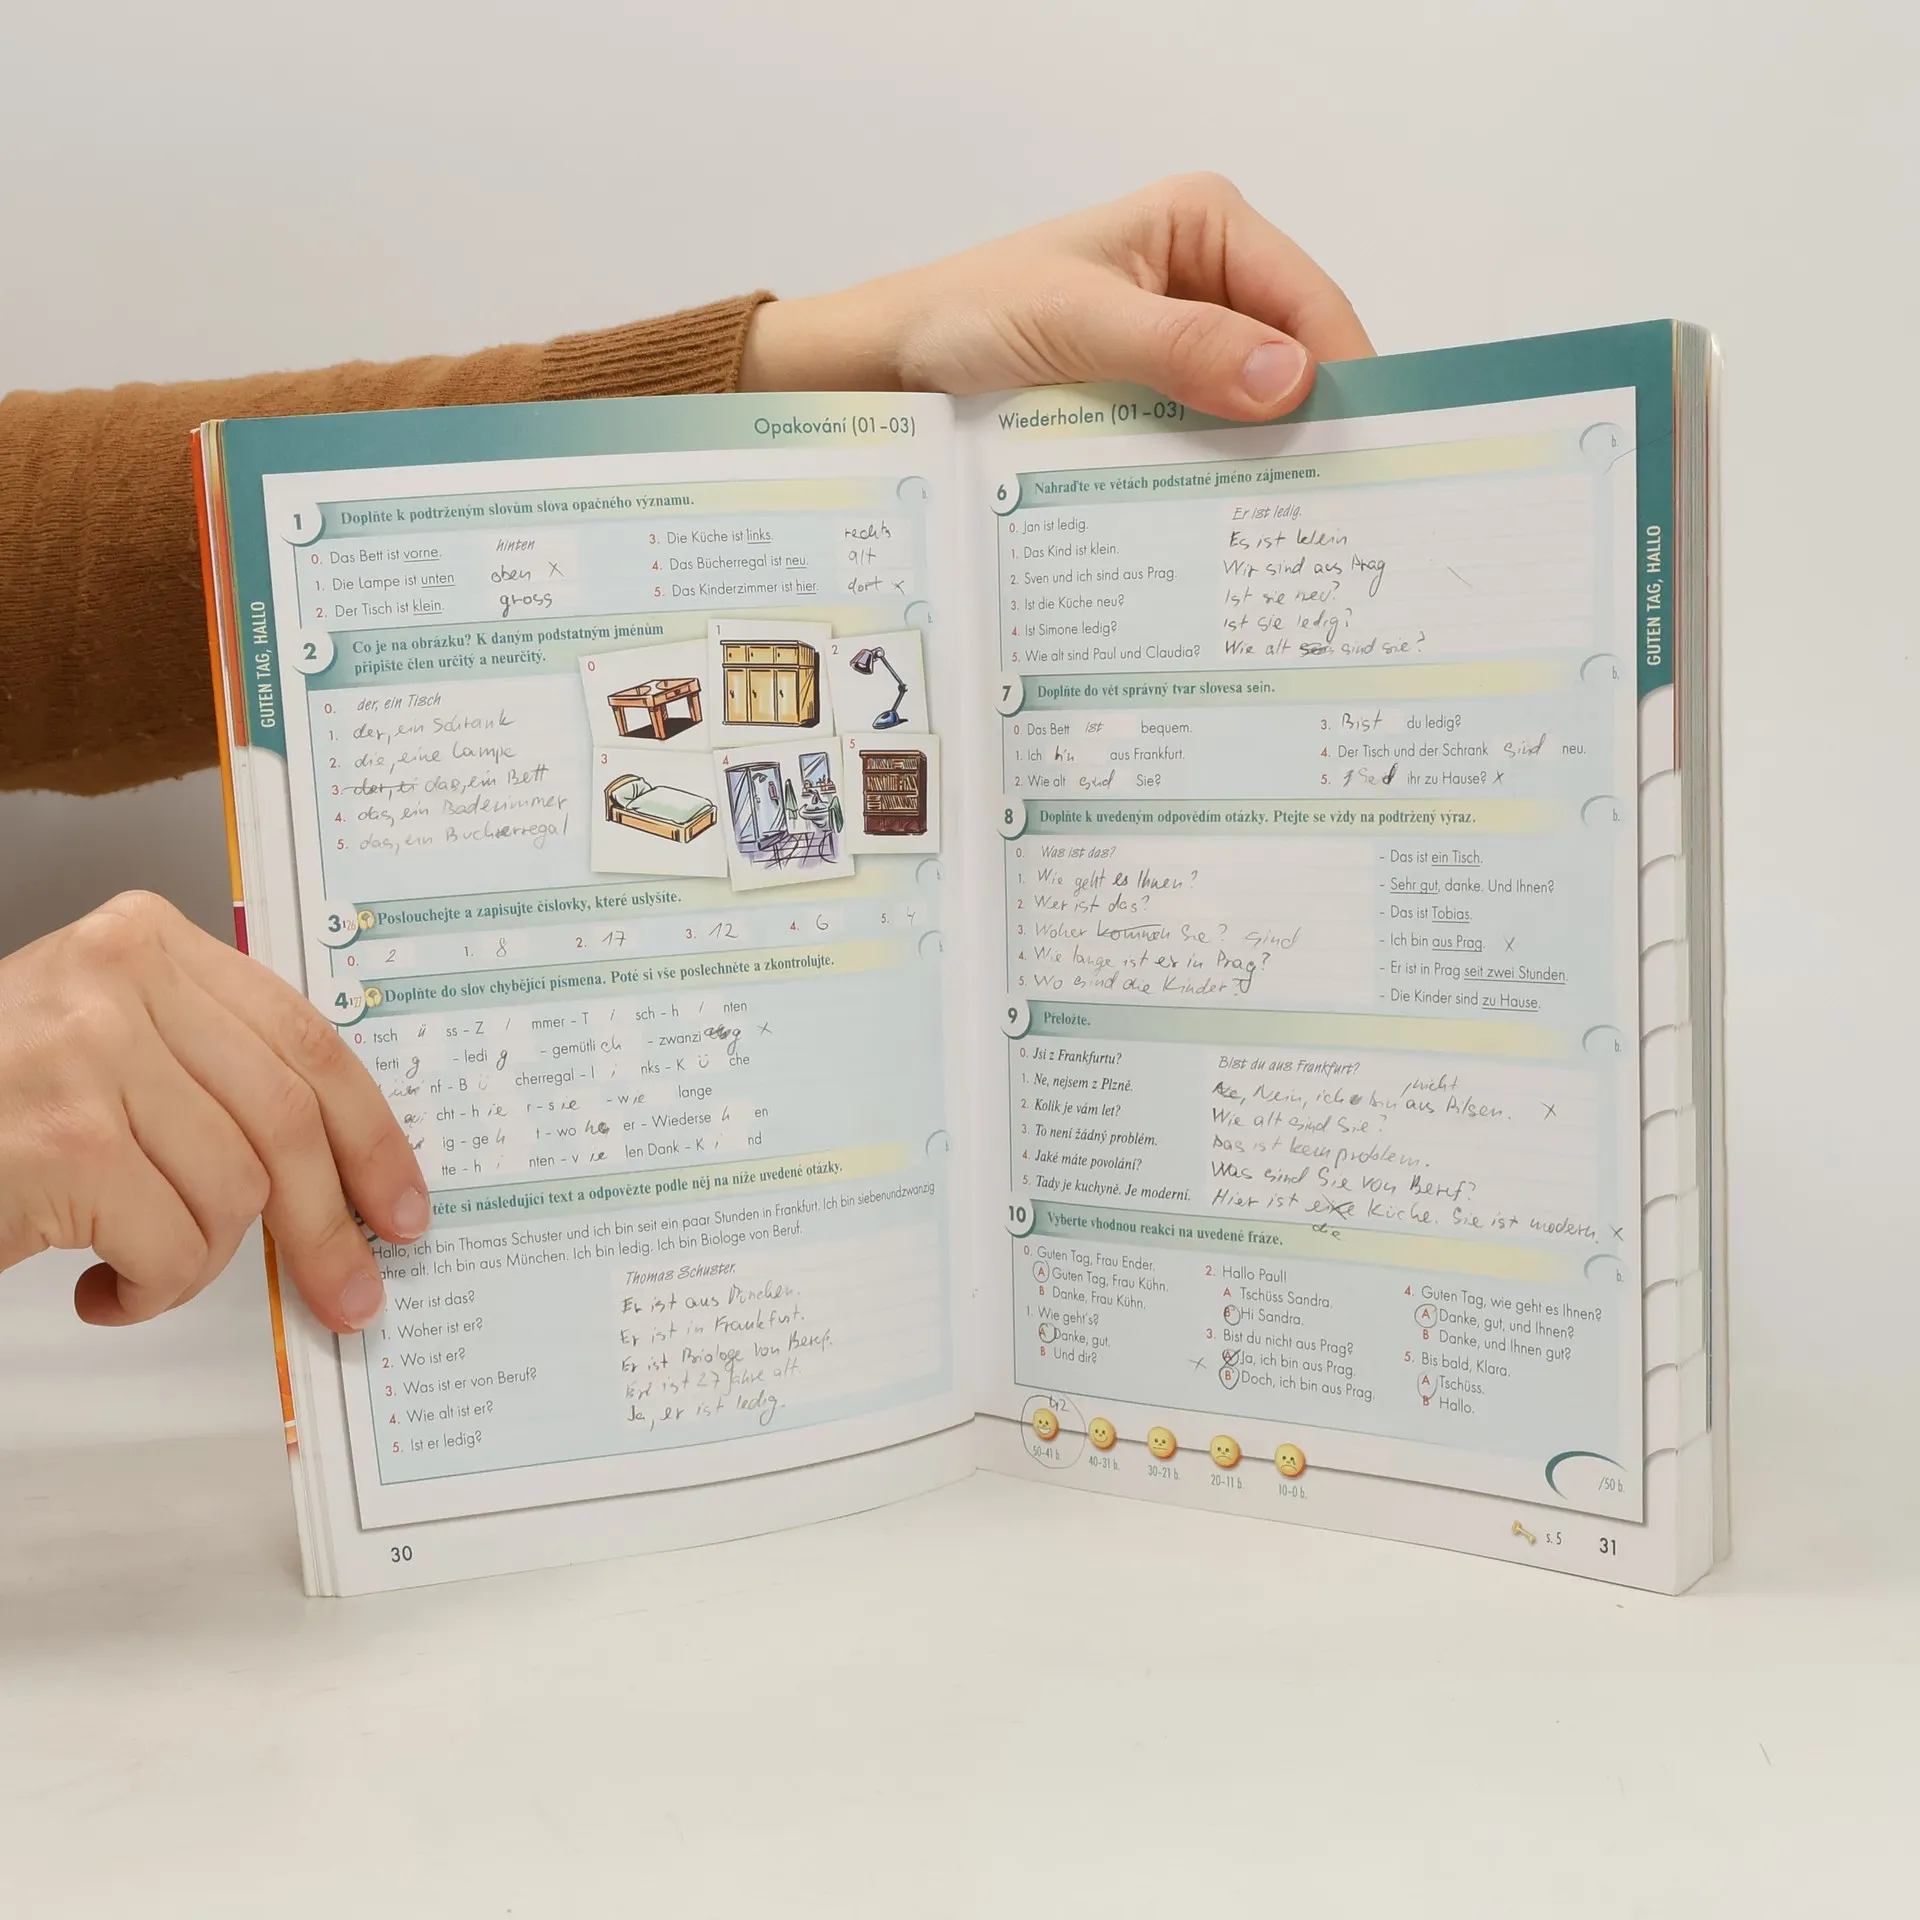 Opakování (01-03)
GUTEN TAG, HALLO
1 Doplňte k podtrženým slovům slova opačného významu.
0. Das Bett ist vorne. hinten
1. Die Lampe ist unten oben x
2. Der Tisch ist klein. gross
3. Die Küche ist links. rechts
4. Das Bücherregal ist neu. alt
5. Das Kinderzimmer ist hier. dort x
b.
2 Co je na obrázku? K daným podstatným jménům
připište člen určitý a neurčitý.
b.
0. der, ein Tisch
1. der, ein Schrank
2. die, eine Lampe
3. das, ein Bett
4. das, ein Badezimmer
5. das, ein Bucherregal
0
1
2
3
4
5
3 Poslouchejte a zapisujte číslovky, které uslyšíte.
0. 2 1. 8 2. 17 3. 12 4. 6 5. 4
4 Doplňte do slov chybějící písmena. Poté si vše poslechněte a zkontrolujte.
0. tsch ü ss - Z i mmer - T i sch - h i nten
ferti g - ledi g - gemütli ch - zwanzi g x
nf - B ü cherregal - l i nks - K ü che
cht - h ie r - s ie - w ie lange
ig - ge h t - wo her - Wiederse h en
tte - h i nten - v ie len Dank - K i nd
těte si následující text a odpovězte podle něj na níže uvedené otázky.
Hallo, ich bin Thomas Schuster und ich bin seit ein paar Stunden in Frankfurt. Ich bin siebenundzwanzig
ahre alt. Ich bin aus München. Ich bin ledig. Ich bin Biologe von Beruf.
. Wer ist das? Thomas Schuster.
1. Woher ist er? Er ist aus München.
2. Wo ist er? Er ist in Frankfurt.
3. Was ist er von Beruf? Er ist Biologe von Beruf.
4. Wie alt ist er? Er ist 27 Jahre alt.
5. Ist er ledig? Ja, er ist ledig.
30
Wiederholen (01-03)
GUTEN TAG, HALLO
6 Nahraďte ve větách podstatné jméno zájmenem.
b.
0. Jan ist ledig. Er ist ledig.
1. Das Kind ist klein. Es ist klein
2. Sven und ich sind aus Prag. Wir sind aus Prag
3. Ist die Küche neu? Ist sie neu?
4. Ist Simone ledig? Ist sie ledig?
5. Wie alt sind Paul und Claudia? Wie alt sind sie?
7 Doplňte do vět správný tvar slovesa sein.
b.
0. Das Bett ist bequem.
1. Ich bin aus Frankfurt.
2. Wie alt sind Sie?
3. Bist du ledig?
4. Der Tisch und der Schrank sind neu.
5. ihr zu Hause? x
8 Doplňte k uvedeným odpovědím otázky. Ptejte se vždy na podtržený výraz.
b.
0. Was ist das? - Das ist ein Tisch.
1. Wie geht es Ihnen? - Sehr gut, danke. Und Ihnen?
2. Wer ist das? - Das ist Tobias.
3. Woher kommen Sie? sind - Ich bin aus Prag. x
4. Wie lange ist er in Prag? - Er ist in Prag seit zwei Stunden.
5. Wo sind die Kinder? - Die Kinder sind zu Hause.
9 Přeložte.
b.
0. Jsi z Frankfurtu? Bist du aus Frankfurt?
1. Ne, nejsem z Plzně. Nein, ich bin nicht aus Pilsen. x
2. Kolik je vám let? Wie alt sind Sie?
3. To není žádný problém. Das ist kein problem.
4. Jaké máte povolání? Was sind Sie von Beruf?
5. Tady je kuchyně. Je moderní. Hier ist eine Küche. Sie ist modern. x
die
10 Vyberte vhodnou reakci na uvedené fráze.
b.
0. Guten Tag, Frau Ender.
A Guten Tag, Frau Kühn.
B Danke, Frau Kühn.
1. Wie geht's?
A Danke, gut.
B Und dir?
2. Hallo Paul!
A Tschüss Sandra.
B Hi Sandra.
3. Bist du nicht aus Prag?
x A Ja, ich bin aus Prag.
B Doch, ich bin aus Prag.
4. Guten Tag, wie geht es Ihnen?
A Danke, gut, und Ihnen?
B Danke, und Ihnen gut?
5. Bis bald, Klara.
A Tschüss.
B Hallo.
50-41 b. 40-31 b. 30-21 b. 20-11 b. 10-0 b.
/50 b.
s. 5 31